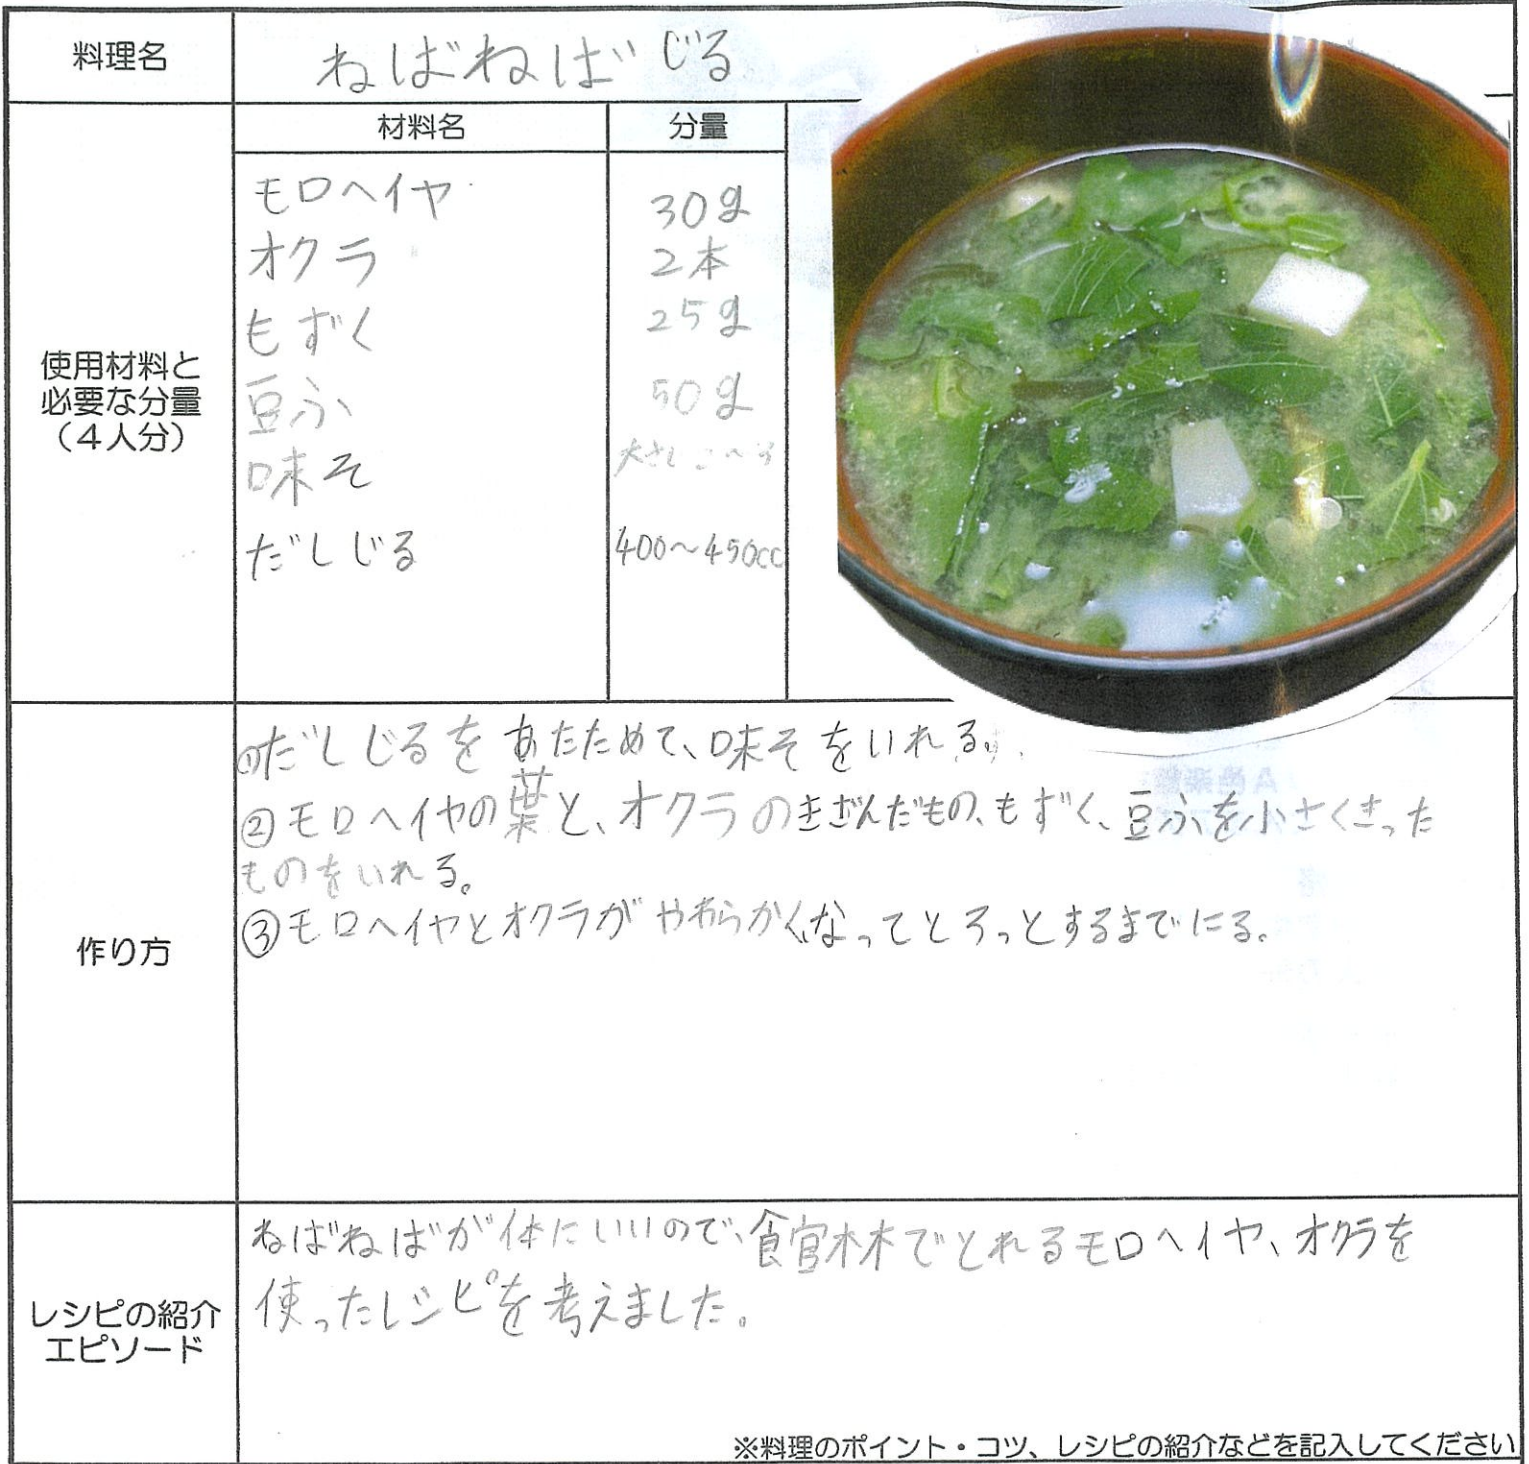 料理名
ねばねばじる
使用材料と
必要な分量
(4人分)
材料名 分量
モロヘイヤ 30g
オクラ 2本
もずく 25g
豆ふ 50g
味そ 大さじ2〜3
だしじる 400〜450cc
作り方
①だしじるをあたためて、味そをいれる。
②モロヘイヤの葉と、オクラのきざんだもの、もずく、豆ふを小さくきった
ものをいれる。
③モロヘイヤとオクラがやわらかくなってとろっとするまでにる。
レシピの紹介
エピソード
ねばねばが体にいいので、食官村でとれるモロヘイヤ、オクラを
使ったレシピを考えました。
※料理のポイント・コツ、レシピの紹介などを記入してください